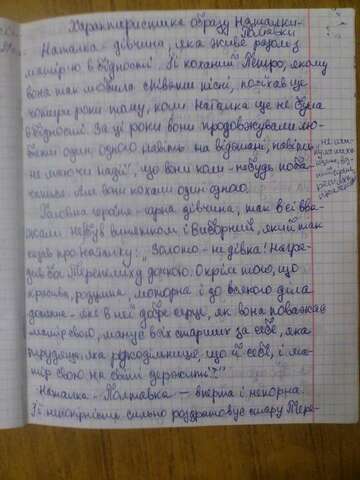 Характеристика образу Наталки-
Полтавки
Наталка - дівчина, яка живе разом з
матір'ю в бідності. Її коханий Петро, якому
вона так любила співати пісні, поїхав ще
чотири роки тому, коли Наталка ще не була
в бідності. За ці роки вони продовжували лю-
бити один одного навіть на відстані, навіть
не маючи надії, що вони коли-небудь поба-
чаться. Але вони кохали один одного.
Головна героїня - гарна дівчина, так в її вва-
жали не був винятком і Виборний, який так
сказав про Наталку: "Золото - не дівка! Нагро-
див бог Терпелиху дочкою. Окрім того, що
красива, розумна, моторна і до всякого діла
дотепна - яке в неї добре серце, як вона поважає
матір свою, шанує всіх старших за себе, яка
трудяща, яка рукодільниця, що й себе, і ма-
тір свою на світі держить!"
Наталка-Полтавка — вперта і непокірна.
Її непокірність сильно роздратовує стару Терпе-